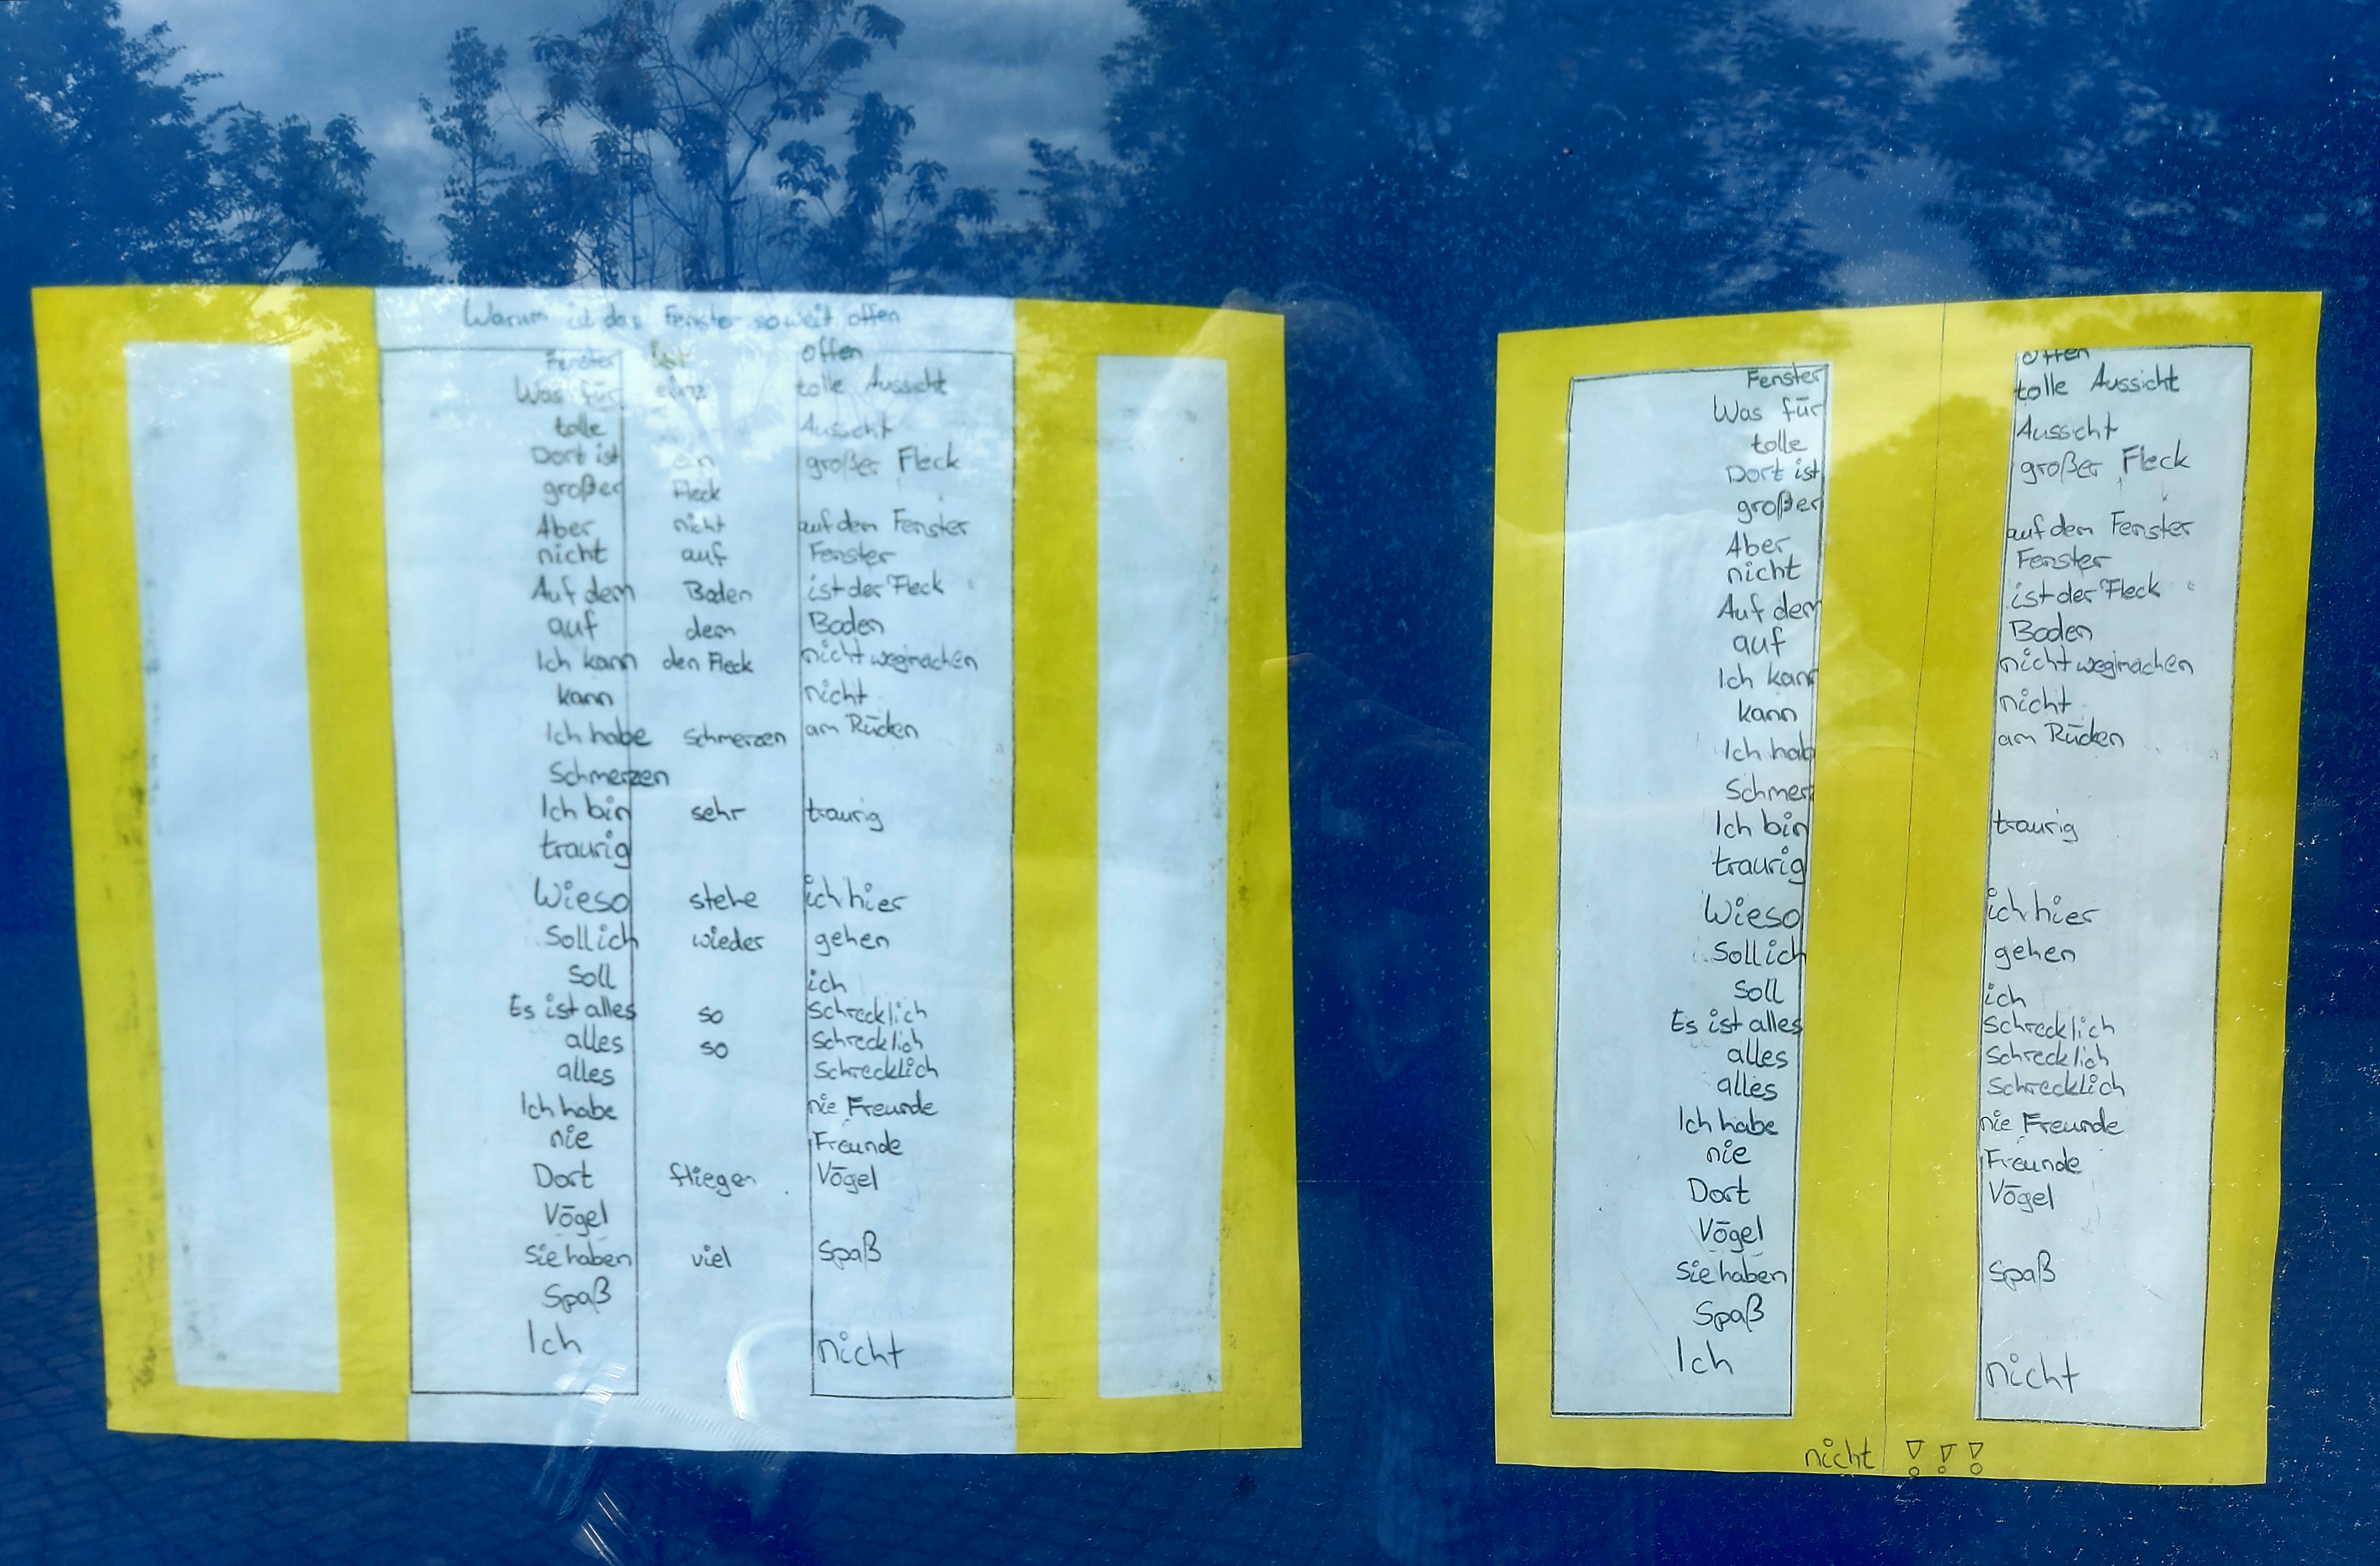 Warum ist das Fenster soweit offen
Fenster ist offen
Was für eine tolle Aussicht
tolle Aussicht
Dort ist ein großer Fleck
großer Fleck
Aber nicht auf dem Fenster
nicht auf Fenster
Auf dem Boden ist der Fleck
auf dem Boden
Ich kann den Fleck nicht wegmachen
kann nicht
Ich habe Schmerzen am Rücken
Schmerzen
Ich bin sehr traurig
traurig
Wieso stehe ich hier
Soll ich wieder gehen
Soll ich
Es ist alles so Schrecklich
alles so Schrecklich
alles Schrecklich
Ich habe nie Freunde
nie Freunde
Dort fliegen Vögel
Vögel
Sie haben viel Spaß
Spaß
Ich nicht
Fenster offen
Was für tolle Aussicht
tolle Aussicht
Dort ist großer Fleck
großer
Aber auf dem Fenster
nicht Fenster
Auf dem ist der Fleck
auf Boden
Ich kann nicht wegmachen
kann nicht
Ich hab am Rücken
Schmer
Ich bin traurig
traurig
Wieso ich hier
Soll ich gehen
Soll ich
Es ist alles Schrecklich
alles Schrecklich
alles Schrecklich
Ich habe nie Freunde
nie Freunde
Dort Vögel
Vögel
Sie haben Spaß
Spaß
Ich nicht
nicht !!!